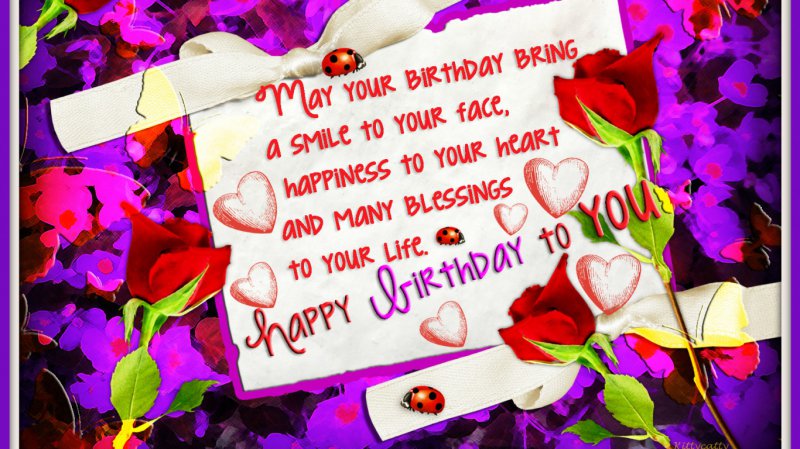 May your birthday bring
a smile to your face,
happiness to your heart
and many blessings
to your life.
Happy Birthday to YOU
Kittycatty